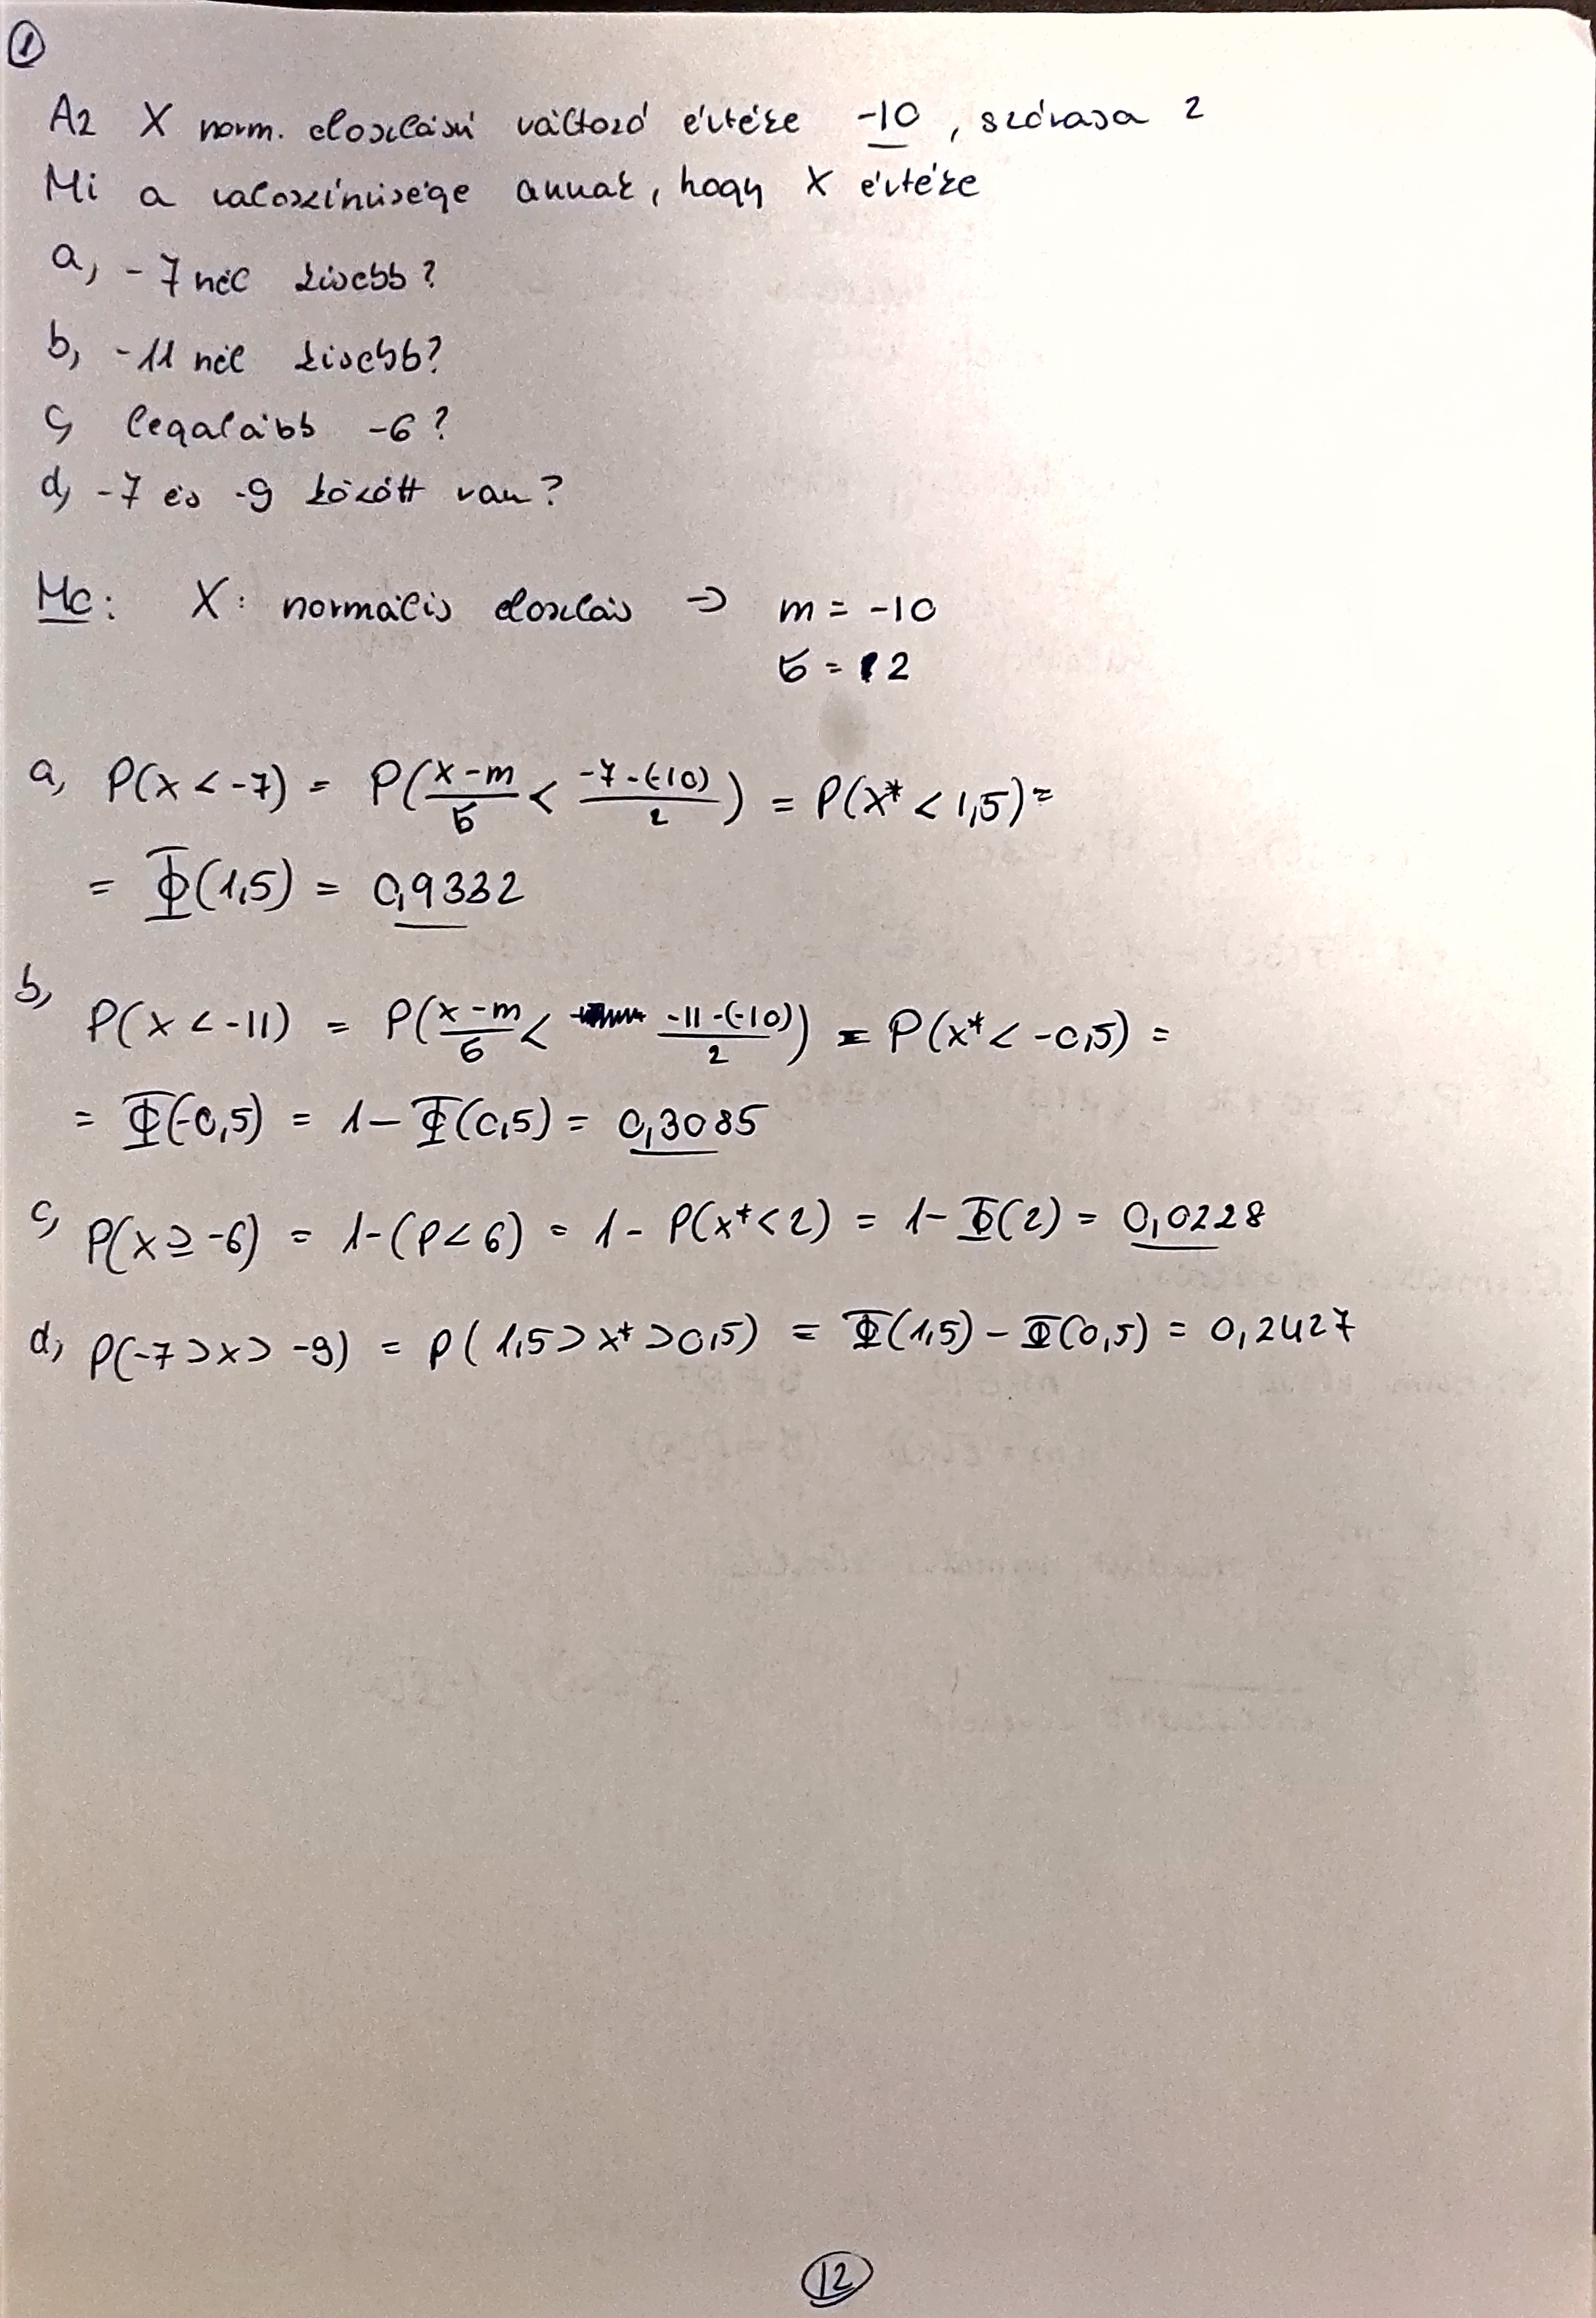 1
Az X norm. eloszlású változó értéke -10, szórása 2
Mi a valószínűsége annak, hogy X értéke
a, -7 nél kisebb?
b, -11 nél kisebb?
c, legalább -6?
d, -7 és -9 között van?
Mo: X: normális eloszlás => m = -10
σ = 2
a, P(x < -7) = P((x-m)/σ < (-7-(-10))/2) = P(x* < 1,5) =
= Φ(1,5) = 0,9332
b, P(x < -11) = P((x-m)/σ < (-11-(-10))/2) = P(x* < -0,5) =
= Φ(-0,5) = 1 - Φ(0,5) = 0,3085
c, P(x ≥ -6) = 1-(P<6) = 1 - P(x* < 2) = 1 - Φ(2) = 0,0228
d, P(-7 > x > -9) = P(1,5 > x* > 0,5) = Φ(1,5) - Φ(0,5) = 0,2427
12